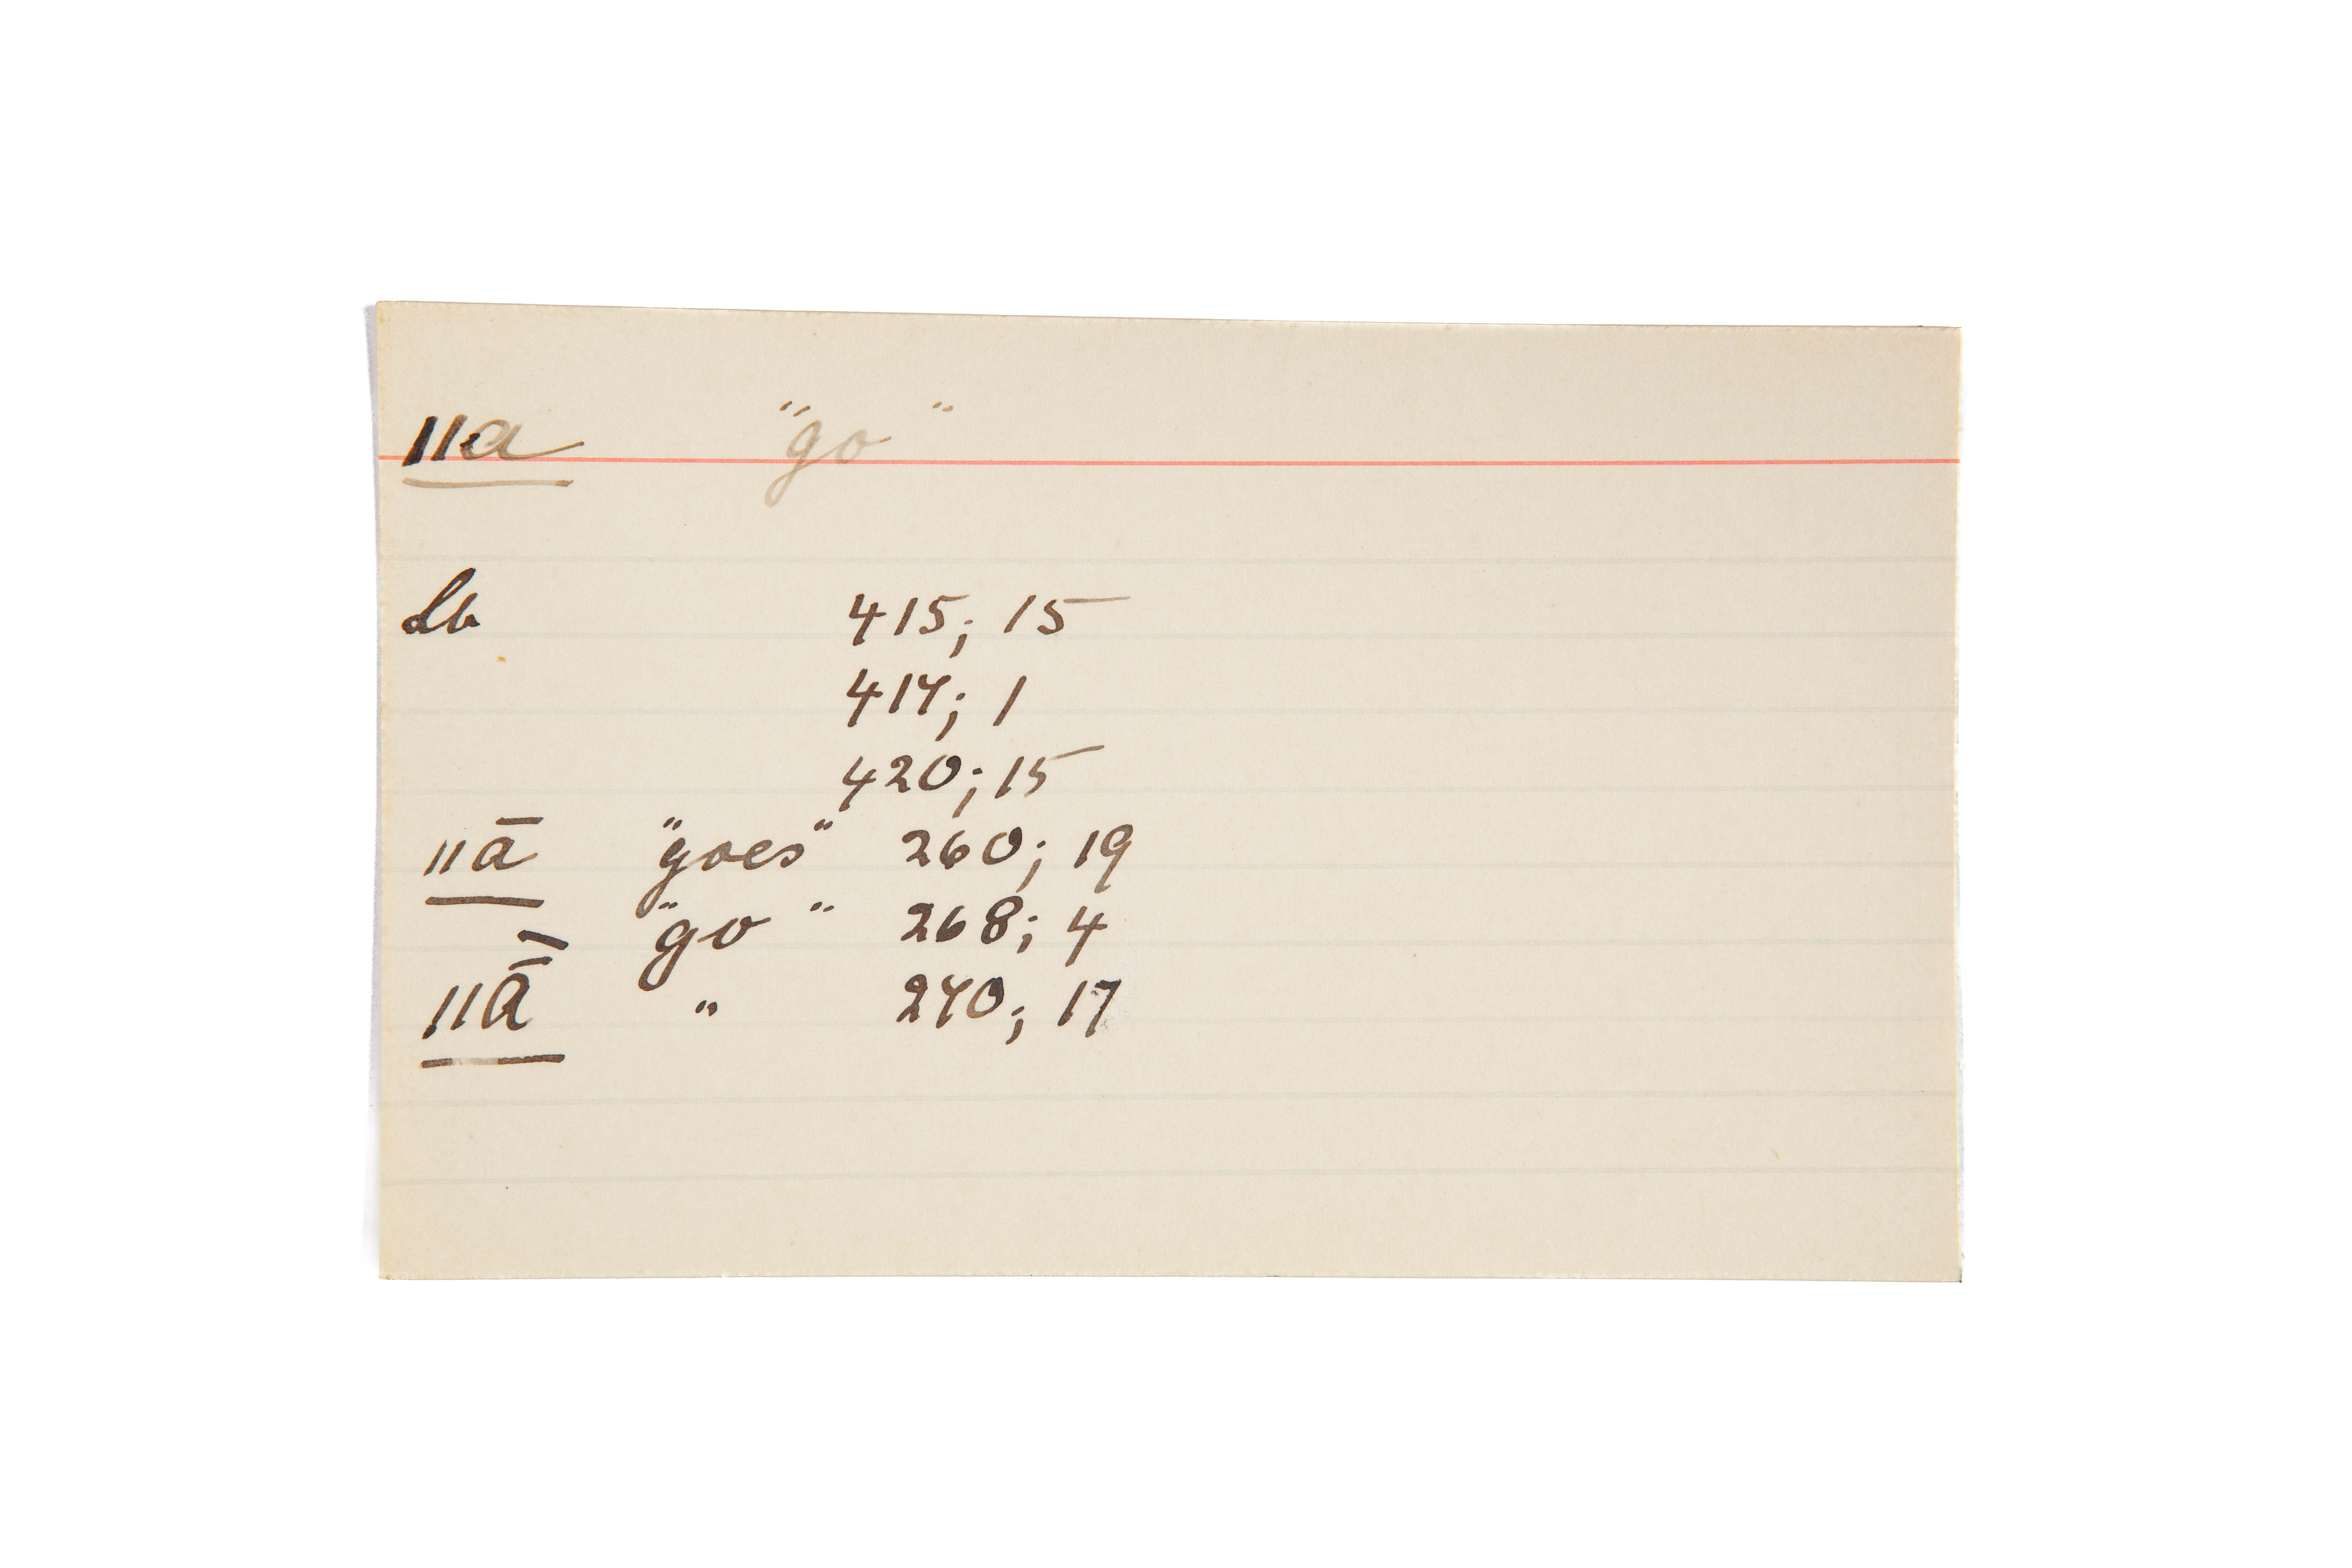 ǁa "go"
Lb 415; 15
417; 1
420; 15
ǁā "goes" 260; 19
"go" 268; 4
ǁā " 270; 17